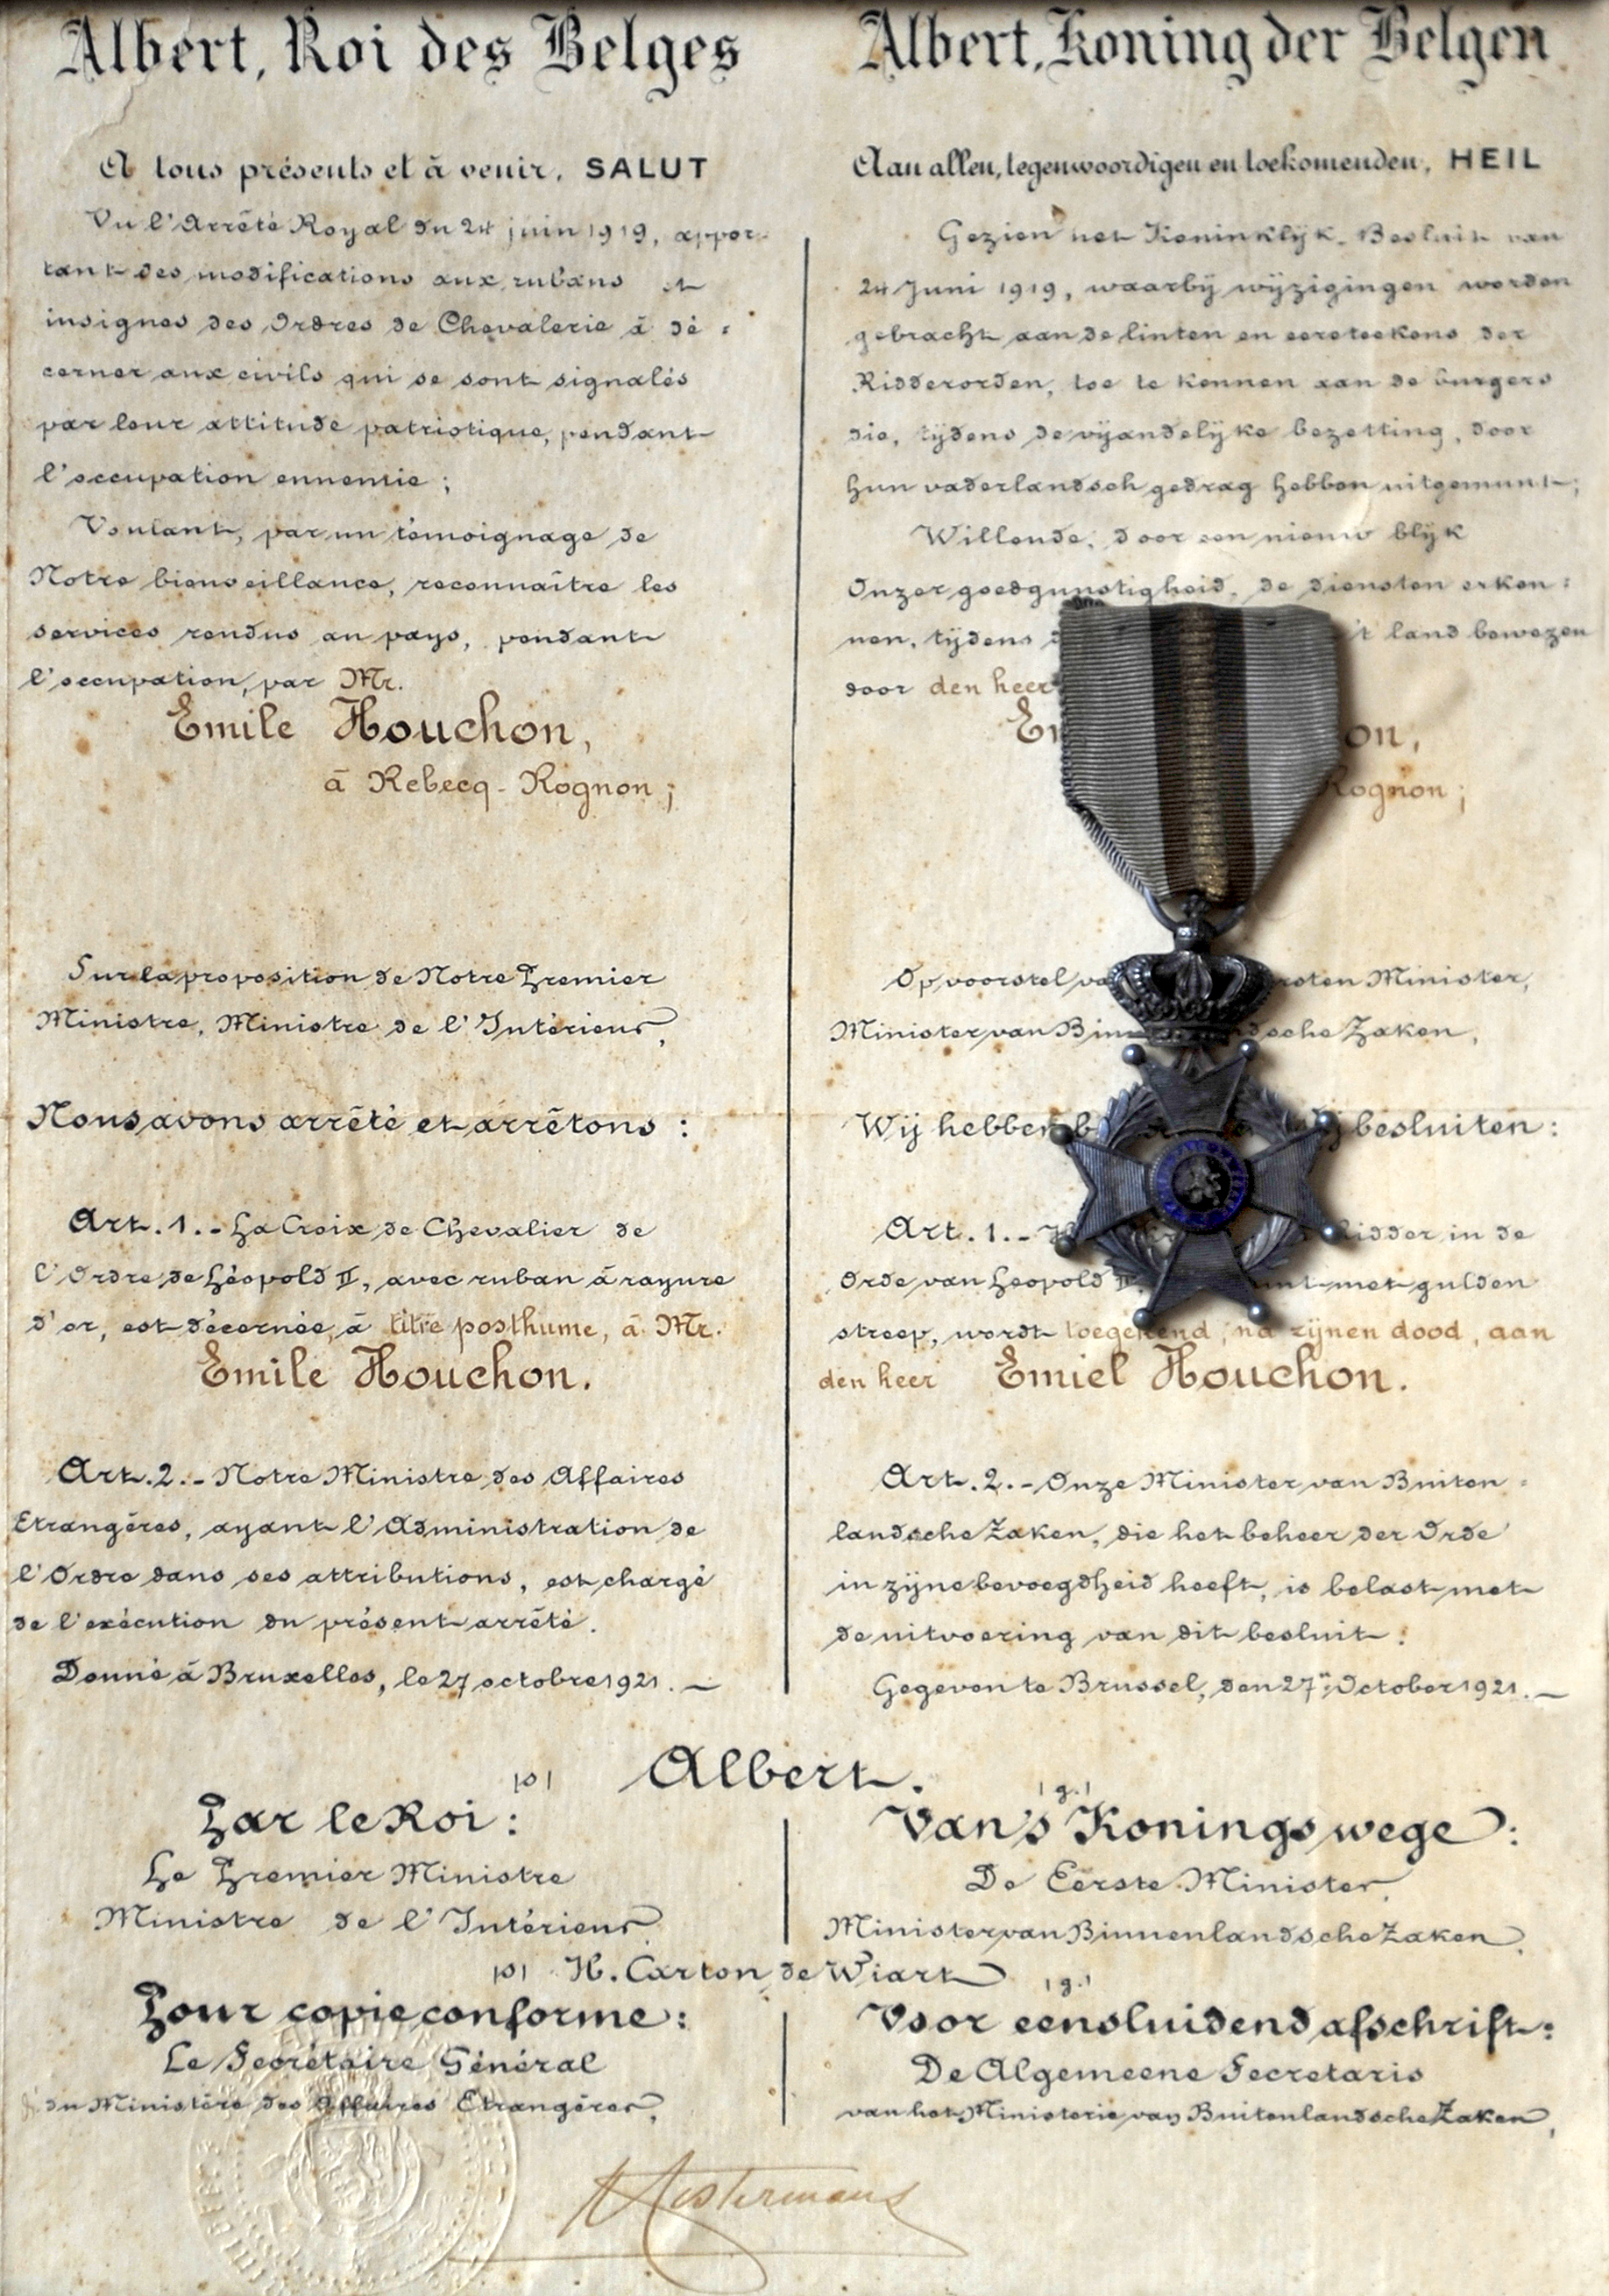 Albert, Roi des Belges
A tous présents et à venir, SALUT
Vu l'Arrêté Royal du 24 juin 1919, appor-
tant des modifications aux rubans et
insignes des Ordres de Chevalerie à dé=
cerner aux civils qui se sont signalés
par leur attitude patriotique, pendant
l'occupation ennemie;
Voulant, par un témoignage de
Notre bienveillance, reconnaître les
services rendus au pays, pendant
l'occupation, par Mr.
Emile Houchon,
à Rebecq-Rognon;
Sur la proposition de Notre Premier
Ministre, Ministre de l'Intérieur,
Nous avons arrêté et arrêtons:
Art. 1.- La Croix de Chevalier de
l'Ordre de Léopold II, avec ruban à rayure
d'or, est décernée, à titre posthume, à Mr.
Emile Houchon.
Art. 2.- Notre Ministre des Affaires
Etrangères, ayant l'Administration de
l'Ordre dans ses attributions, est chargé
de l'exécution du présent arrêté.
Donné à Bruxelles, le 27 octobre 1921.—
Albert, Koning der Belgen
Aan allen, tegenwoordigen en toekomenden, HEIL
Gezien het Koninklijk Besluit van
24 Juni 1919, waarbij wijzigingen worden
gebracht aan de linten en eereteekens der
Ridderorden, toe te kennen aan de burgers
die, tijdens de vijandelijke bezetting, door
hun vaderlandsch gedrag hebben uitgemunt;
Willende, door een nieuw blijk
Onzer goedgunstigheid, de diensten erken=
nen, tijdens 't land bewezen
door den heer
on,
Rognon;
Op voorstel Minister,
Minister van Zaken,
Wij hebben besluiten:
Art. 1.- Ridder in de
Orde van Leopold II, met gulden
streep, wordt toegekend, na zijnen dood, aan
den heer Emiel Houchon.
Art. 2.- Onze Minister van Buiten=
landsche Zaken, die het beheer der Orde
in zijne bevoegdheid heeft, is belast met
de uitvoering van dit besluit.
Gegeven te Brussel, den 27n October 1921.—
|s| Albert. |g.|
Par le Roi:
Le Premier Ministre
Ministre de l'Intérieur,
Van 's Konings wege:
De Eerste Minister,
Minister van Binnenlandsche Zaken,
|s| H. Carton de Wiart |g.|
Pour copie conforme:
Le Secrétaire Général
du Ministère des Affaires Etrangères,
Voor eensluidend afschrift:
De Algemeene Secretaris
van het Ministerie van Buitenlandsche Zaken,